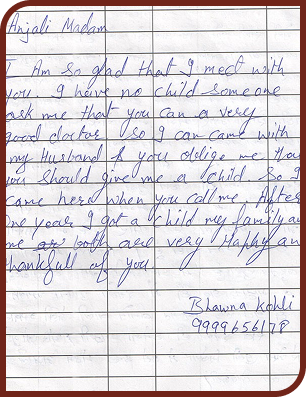 Anjali Madam
I Am so glad that I meet with
you I have no child someone
ask me that you can a very
good doctor so I can came with
my Husband & you oblige me that
you should give me a child so I
came here when you call me After
One year I got a child my family an
me as both are very Happy an
thankfull of you
Bhawna Kohli
9999656178